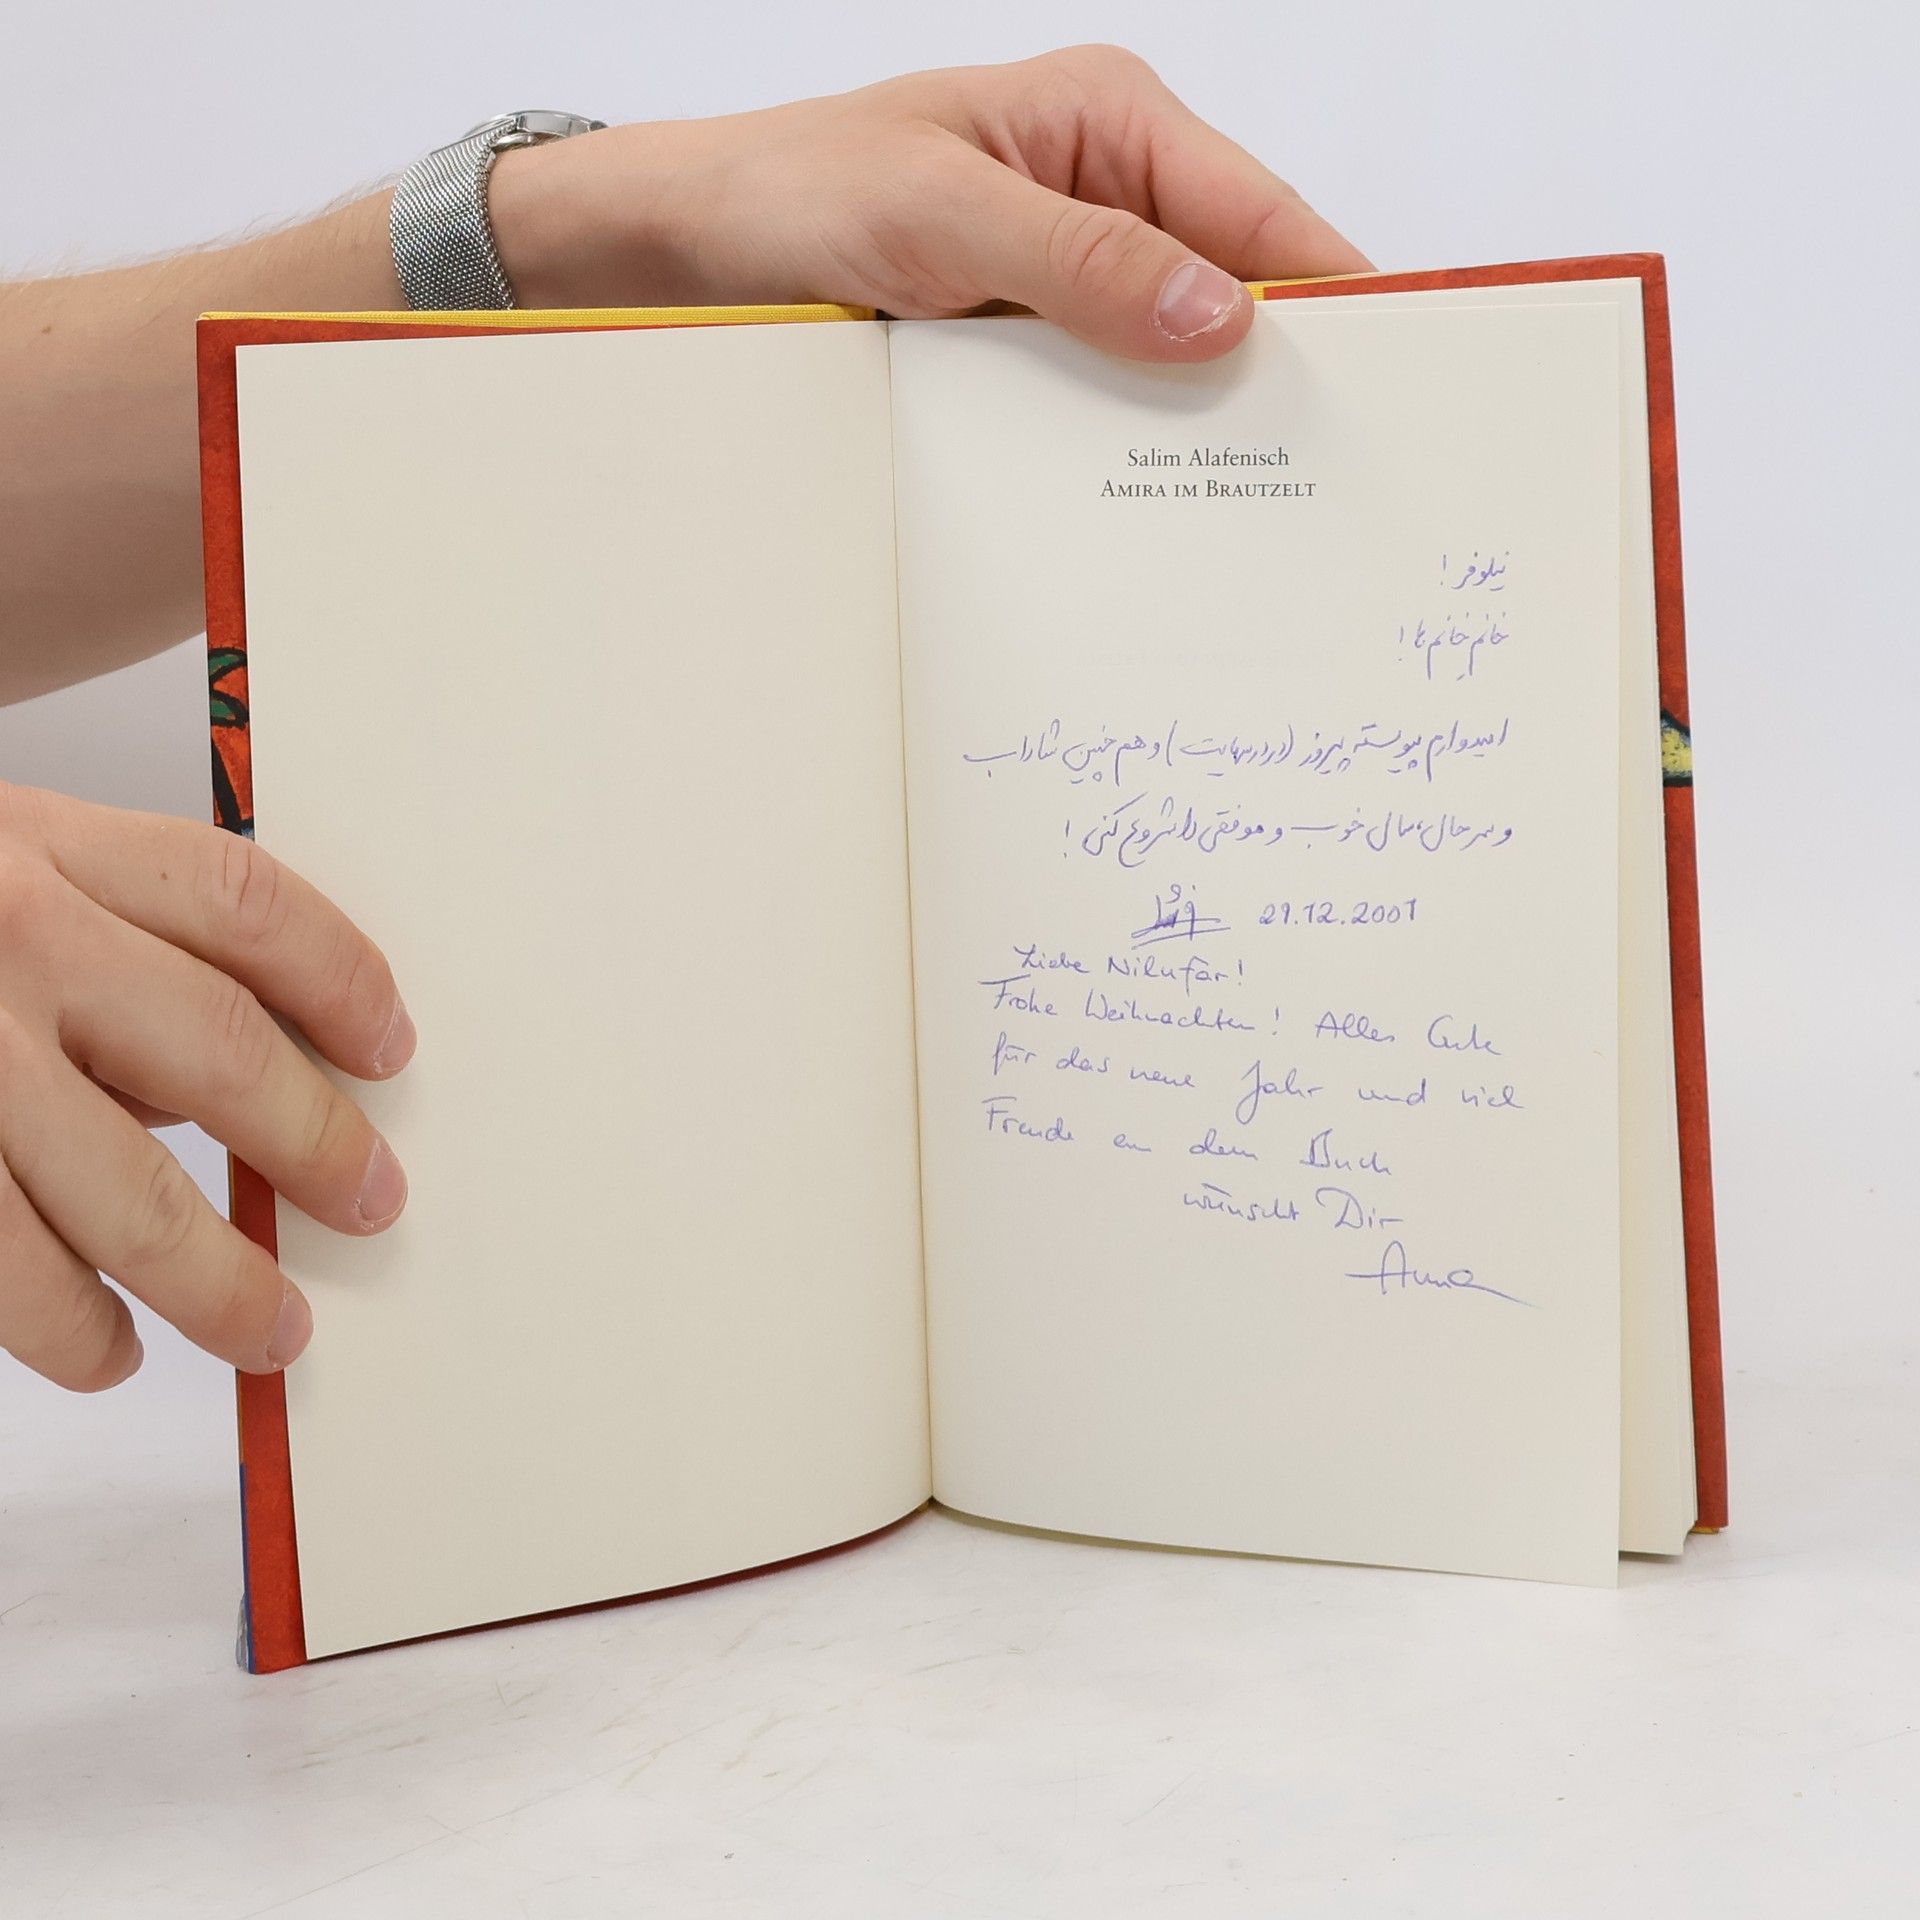 Salim Alafenisch
AMIRA IM BRAUTZELT
نیلوفر!
خانم خانم‌ها!
امیدوارم پیوسته پیروز (در درسهایت) و هم چنین شاداب
و سرحال، سال خوب و موفقی را شروع کنی!
29.12.2001
Liebe Nilufar!
Frohe Weihnachten! Alles Gute
für das neue Jahr und viel
Freude an dem Buch
wünscht Dir
Anna